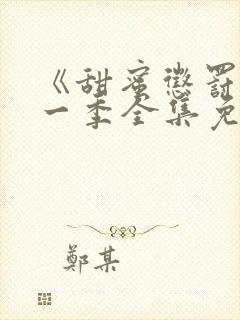 《甜蜜懲罰
一季全集免
鄭某